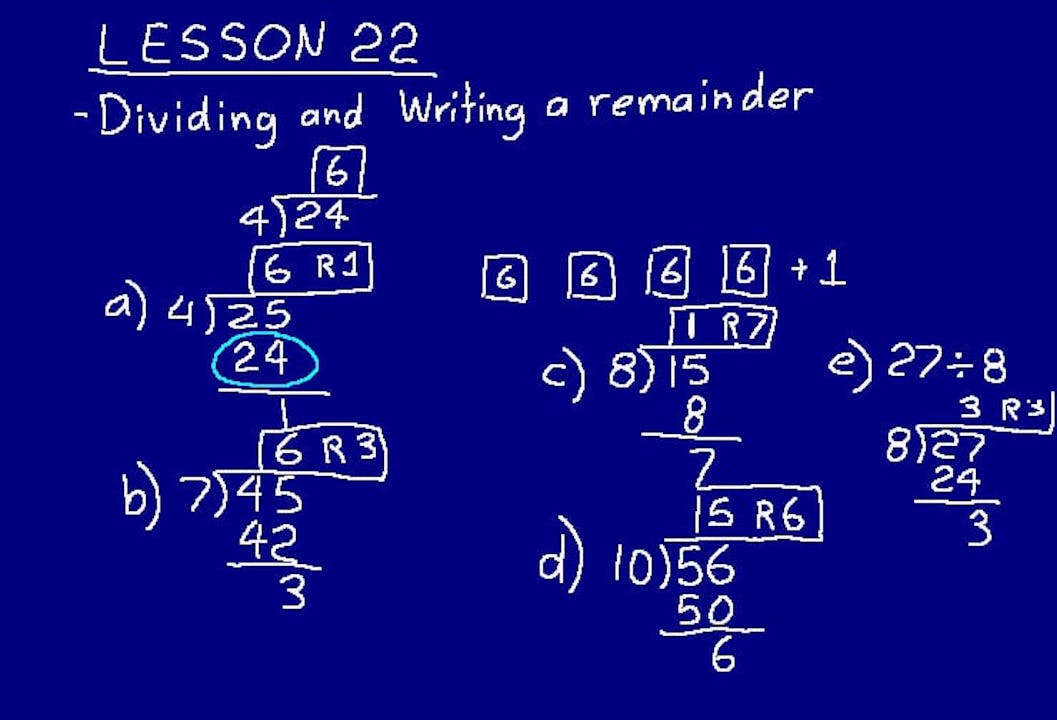 LESSON 22
- Dividing and Writing a remainder
6
4)24
6 R1
a) 4)25
24
1
6 R3
b) 7)45
42
3
6 6 6 6 + 1
1 R7
c) 8)15
8
7
5 R6
d) 10)56
50
6
e) 27÷8
3 R3
8)27
24
3